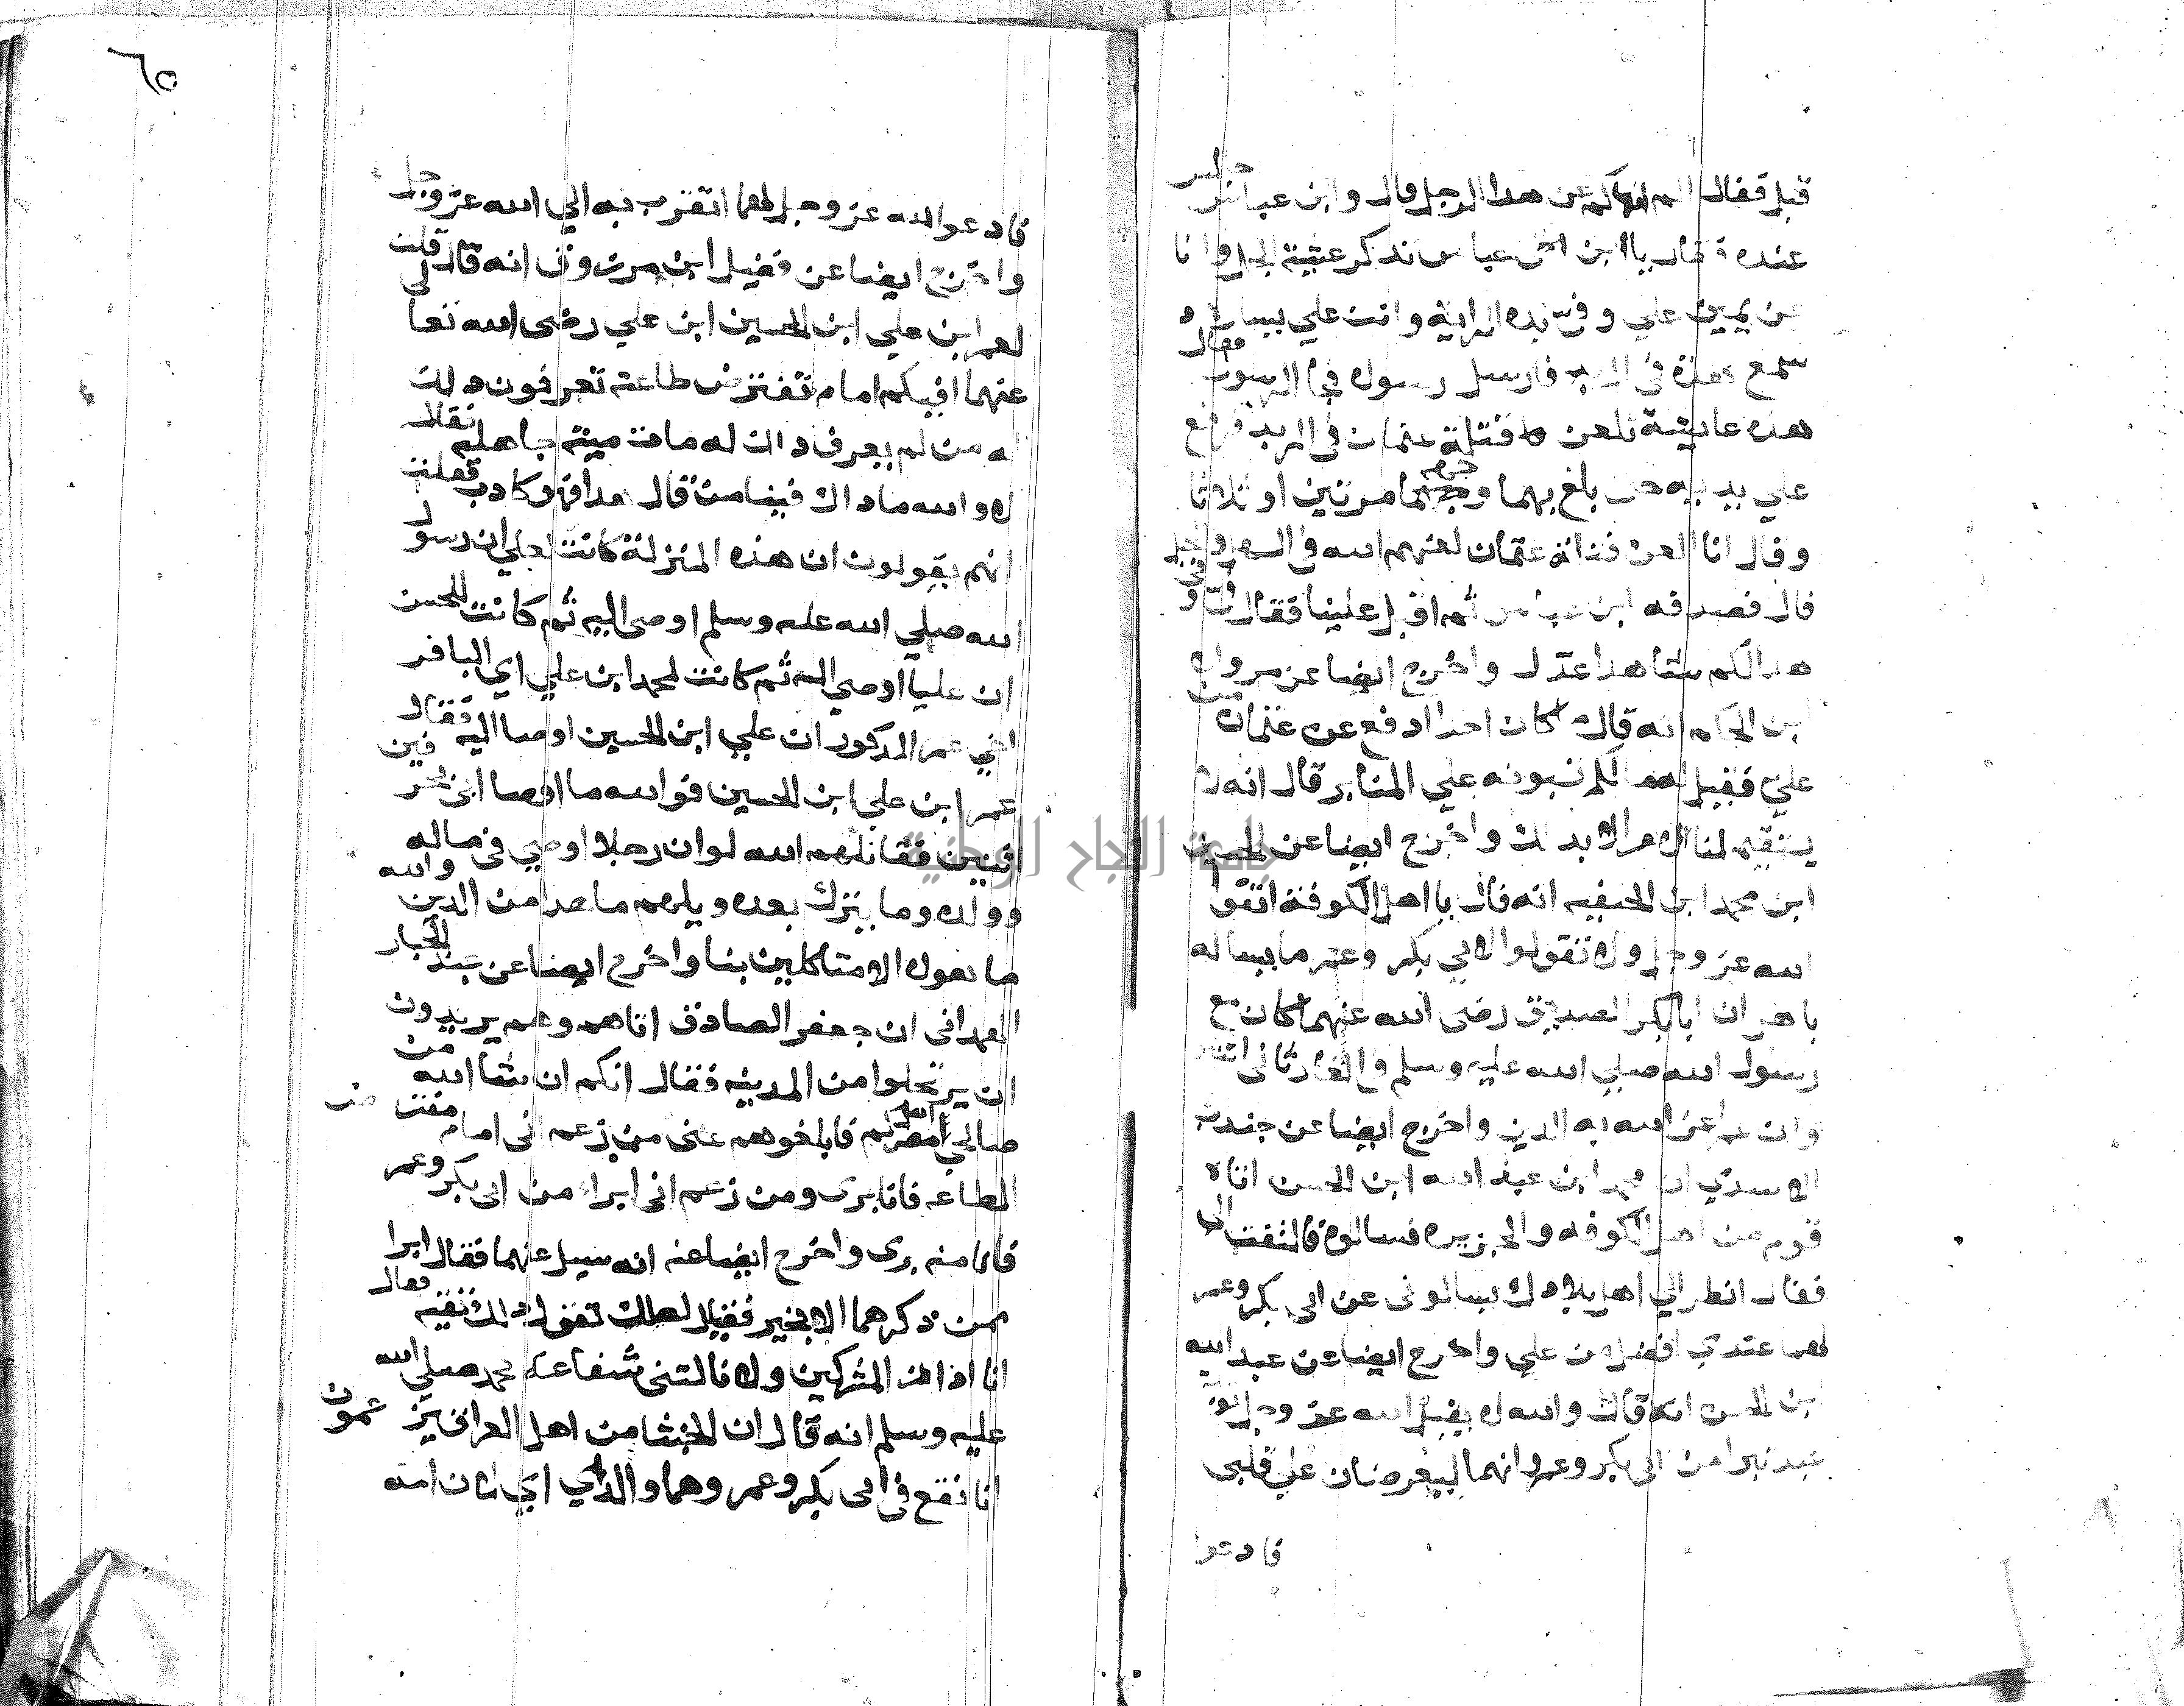 قبل فقال الم انهاكم عن هدا الرجل قال وابن عباس جالس
عنده فقال ياابن عباس تدكر عشية الجمل وانا
عن يمين علي وفي يده الراية وانت علي يساره
سمع هدة في المربد فارسل رسولا فجا الرسول فقال
هده عايشة تلعن قتلة عثمان في المربد فرفع
علي يديه حتي بلغ بهما وجهه مرتين او ثلاثا
وقال انا العن قتلة عثمان لعنهم الله في السهل والجبل
قال فصدقه ابن عباس ثم اقبل علينا فقال في و
هدا لكم شاهدا عدل واخرج ايضا عن مروان
ابن الحكم انه قال ما كان احدا ادفع عن عثمان من
علي فقيل له مالكم تسبونه علي المنابر قال انه لا
يستقيم لنا الامر الا بدلك واخرج ايضا عن الحسن
ابن محمد ابن الحنفيه انه قال يا اهل الكوفة اتقوا
الله عز وجل ولا تقولوا لابي بكر وعمر ما ليسا له
باهل ان ابا بكر الصديق رضى الله عنهما كان مع
رسول الله صلي الله عليه وسلم في الغار ثانى اثنين
وان عمر اعز الله به الدين واخرج ايضا عن جندب
الاسدي ان محمد ابن عبد الله ابن الحسن اتاه
قوم من اهل الكوفه والجزيره فسالوه فالتفت الي
فقال انظر الي اهل بلادك يسالونى عن ابى بكر وعمر
لهما عندي افضل من علي واخرج ايضا عن عبد الله
ابن الحسن انه قال والله لا يقبل الله عز وجل توبة
عبد تبرا من ابى بكر وعمر وانهما ليعرضان علي قلبى
فادعوا
٦٥
فادعو الله عز وجل لهما اتقرب به الي الله عز وجل
واخرج ايضا عن فضيل ابن مرزوق انه قال قلت
لعمر ابن علي ابن الحسين ابن علي رضى الله تعالى
عنهما افيكم امام تفترض طاعته تعرفون دلك
له من لم يعرف دلك له مات ميتة جاهليه فقال
لا والله ما داك فينا من قال هدا فهو كادب فقلت
انهم يقولون ان هذه المنزلة كانت لعلي ان رسول
الله صلي الله عليه وسلم اوصى اليه ثم كانت للحسن
ان عليا اوصي اليه ثم كانت لمحمد ابن علي اي الباقر
اخي عمر المدكور ان علي ابن الحسين اوصا اليه فقال
عمر ابن علي ابن الحسين فوالله ما اوصا ابى بحر فين
اثنين فقاتلهم الله لو ان رجلا اوصي في ماله
وولده وما يترك بعده ويلهم ما هدا من الدين والله
ما هولا الا متاكلين بنا واخرج ايضا عن عبد الجبار
الهمدانى ان جعفر الصادق اتاهم وهم يريدون
ان يرتحلوا من المدينه فقال انكم ان شا الله من
صالحي اهل مصركم فابلغوهم عنى من زعم انى امام مفترض
الطاعه فانا برى ومن زعم انى ابرا من ابى بكر وعمر
فانا منه برى واخرج ايضا عنه انه سيل عنهما فقال ابرا
ممن دكرهما الا بخير فقيل لعلك تقول دلك تقيه فقال
انا ادا من المشركين ولا نالتنى شفاعة محمد صلي الله
عليه وسلم انه قال ان الخبثا من اهل العراق يزعمون
انا نقع في ابى بكر وعمر وهما والداي اي لان امه